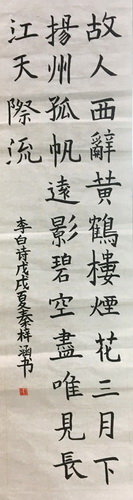 故人西辭黄鶴樓煙花三月下
揚州孤帆遠影碧空盡唯見長
江天際流
李白诗戊戌夏秦梓涵书